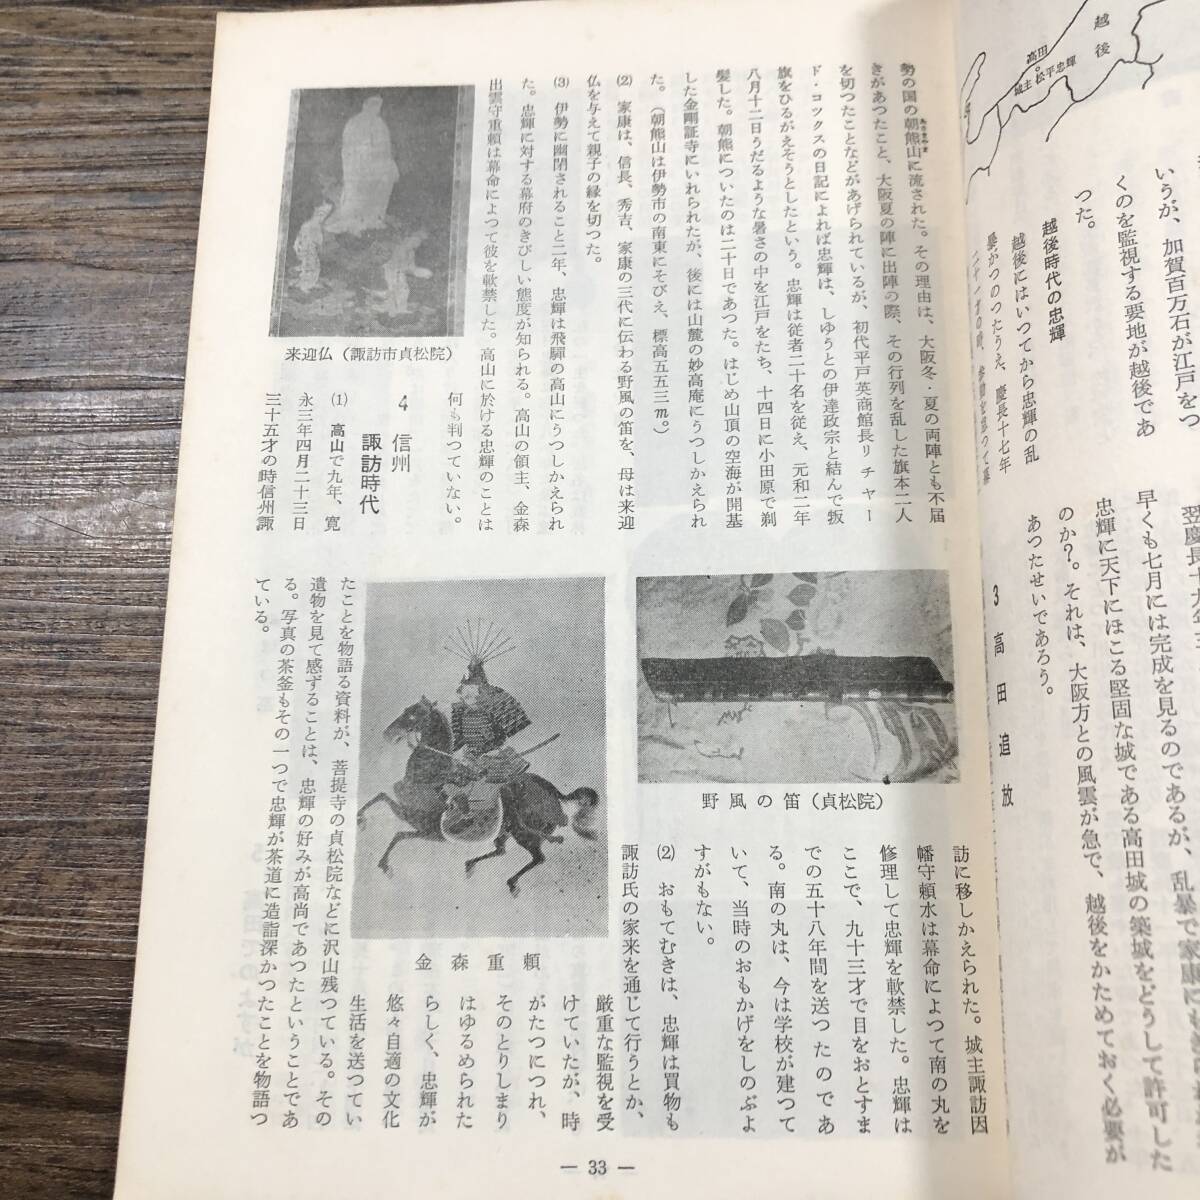 越後
高田
城主 松平忠輝
いうが、加賀百万石が江戸をつ
くのを監視する要地が越後であ
った。
越後時代の忠輝
越後にはいつてから忠輝の乱
暴がつのつたうえ、慶長十七年
早くも七月には完成を見るのであるが、乱暴で家康にも
忠輝に天下にほこる堅固な城である高田城の築城をどうして許可した
のか?。それは、大阪方との風雲が急で、越後をかためておく必要が
あつたせいであろう。
3 高田追放
勢の国の朝熊山に流された。その理由は、大阪冬・夏の両陣とも不届
あさまやま
きがあつたこと、大阪夏の陣に出陣の際、その行列を乱した旗本二人
を切つたことなどがあげられているが、初代平戸英商館長リチャー
ド・コックスの日記によれば忠輝は、しゆうとの伊達政宗と結んで叛
旗をひるがえそうとしたという。忠輝は従者二十名を従え、元和二年
八月十二日うだるような暑さの中を江戸をたち、十四日に小田原で剃
髪した。朝熊についたのは二十日であつた。はじめ山頂の空海が開基
した金剛証寺にいれられたが、後には山麓の妙高庵にうつしかえられ
た。(朝熊山は伊勢市の南東にそびえ、標高五五三m。)
(2) 家康は、信長、秀吉、家康の三代に伝わる野風の笛を、母は来迎
仏を与えて親子の縁を切つた。
(3) 伊勢に幽閉されること二年、忠輝は飛騨の高山にうつしかえられ
た。忠輝に対する幕府のきびしい態度が知られる。高山の領主、金森
出雲守重頼は幕命によつて彼を軟禁した。高山に於ける忠輝のことは
何も判つていない。
来迎仏(諏訪市貞松院)
4 信州
諏訪時代
(1) 高山で九年、寛
永三年四月二十三日
三十五才の時信州諏
野風の笛(貞松院)
訪に移しかえられた。城主諏訪因
幡守頼水は幕命によつて南の丸を
修理して忠輝を軟禁した。忠輝は
ここで、九十三才で目をおとすま
での五十八年間を送つたのであ
る。南の丸は、今は学校が建つて
いて、当時のおもかげをしのぶよ
すがもない。
(2) おもてむきは、忠輝は買物も
諏訪氏の家来を通じて行うとか、
厳重な監視を受
けていたが、時
がたつにつれ、
そのとりしまり
はゆるめられた
らしく、忠輝が
悠々自適の文化
生活を送つてい
金森重頼
たことを物語る資料が、菩提寺の貞松院などに沢山残つている。その
遺物を見て感ずることは、忠輝の好みが高尚であつたということであ
る。写真の茶釜もその一つで忠輝が茶道に造詣深かつたことを物語つ
ている。
— 33 —